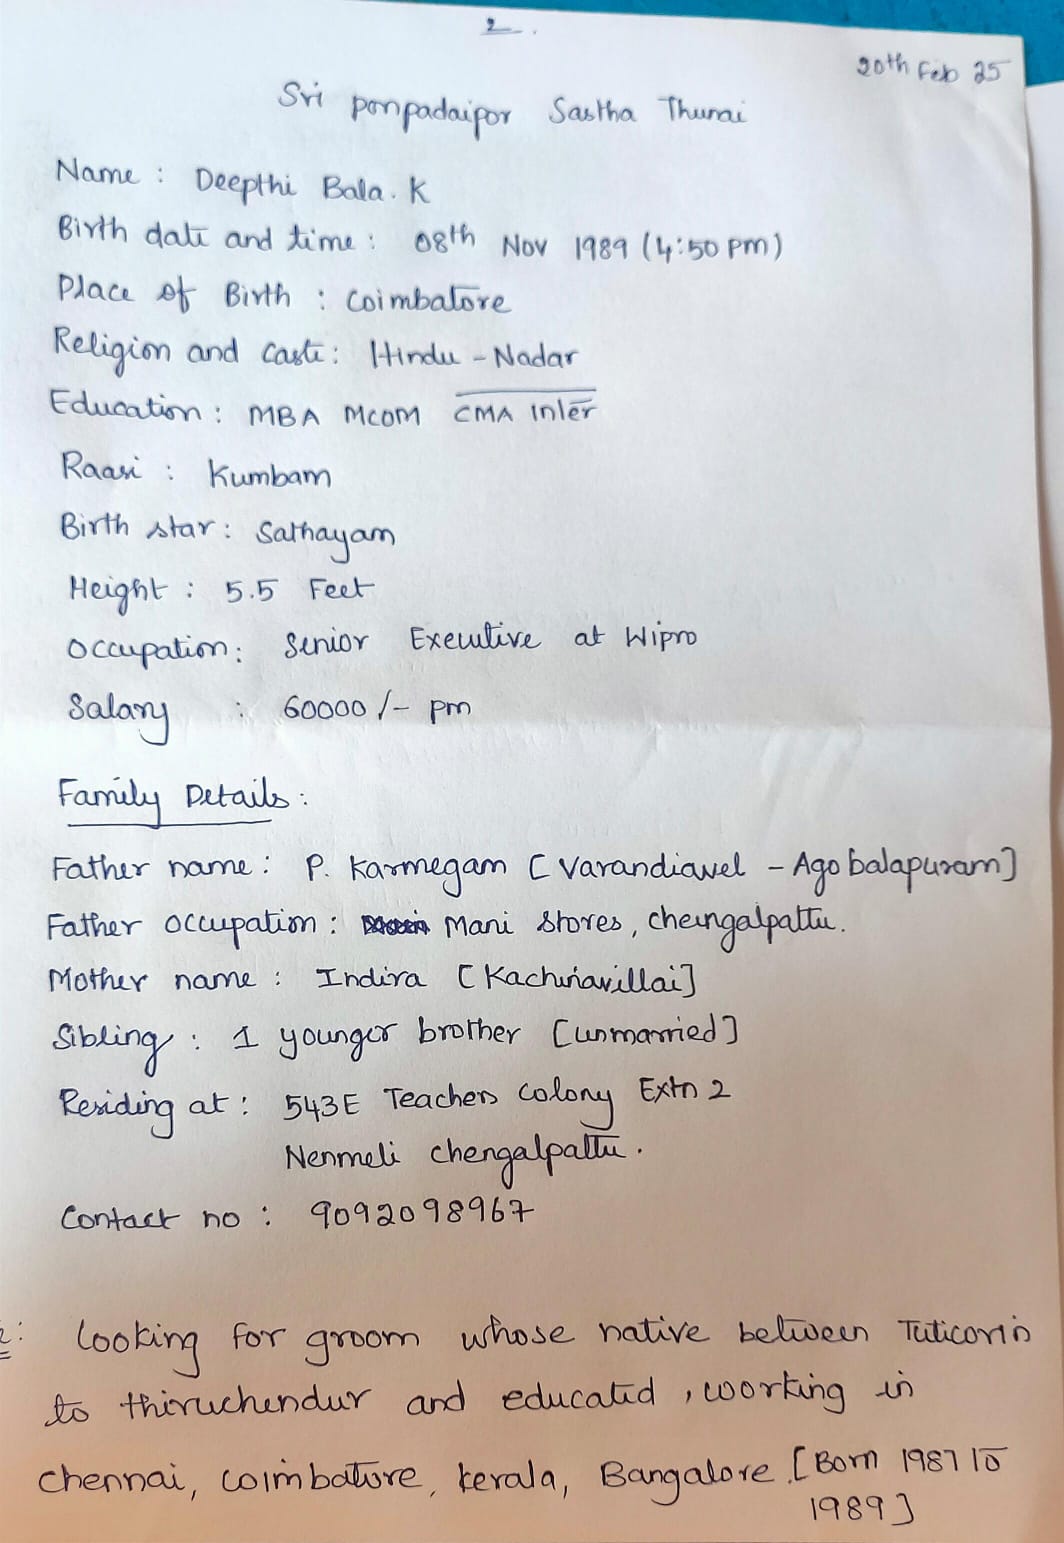 2.
20th Feb 25
Sri ponpadaipor Sastha Thunai
Name : Deepthi Bala. K
Birth date and time : 08th Nov 1989 (4:50 pm)
Place of Birth : Coimbatore
Religion and Caste : Hindu - Nadar
Education : MBA MCOM CMA Inter
Raasi : Kumbam
Birth star : Sathayam
Height : 5.5 Feet
Occupation : Senior Executive at Wipro
Salary : 60000 /- pm
Family Details :
Father name : P. Karmegam [Varandiavel - Agobalapuram]
Father occupation : Mani Stores, cheingalpattu.
Mother name : Indira [Kachinavillai]
Sibling : 1 younger brother [unmarried]
Residing at : 543E Teachers Colony Extn 2
Nenmeli chengalpattu.
Contact no : 9092098967
Looking for groom whose native between Tuticorin
to thiruchendur and educated, working in
chennai, coimbature, kerala, Bangalore. [Born 1987 to
1989]